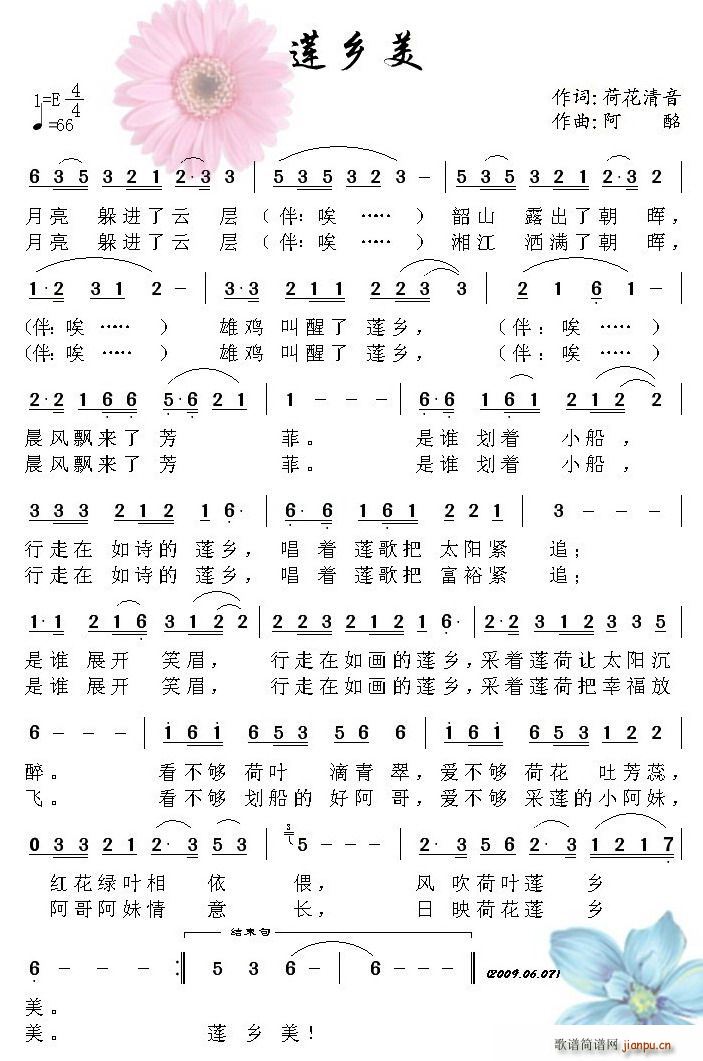 莲乡美
1=E 4/4
♩=66
作词:荷花清音
作曲:阿 酩
6 3 5 3 2 1 2·3 3 | 5 3 5 3 2 3 – | 5 3 5 3 2 1 2·3 2 |
月亮 躲进了云 层 (伴:唉 ……) 韶山 露出了朝 晖,
月亮 躲进了云 层 (伴:唉 ……) 湘江 洒满了朝 晖,
1·2 3 1 2 – | 3·3 2 1 2 2 2 3 3 | 2 1 6 1 – |
(伴:唉 ……) 雄鸡 叫醒了 莲乡, (伴:唉 ……)
(伴:唉 ……) 雄鸡 叫醒了 莲乡, (伴:唉 ……)
2·2 1 6 6 5·6 2 1 | 1 – – – | 6·6 1 6 1 2 1 2 2 |
晨风飘来了 芳 菲。 是谁 划着 小船,
晨风飘来了 芳 菲。 是谁 划着 小船,
3 3 3 2 1 2 1 6· | 6·6 1 6 1 2 2 1 | 3 – – – |
行走在 如诗的 莲乡, 唱 着 莲歌把 太阳紧 追;
行走在 如诗的 莲乡, 唱 着 莲歌把 富裕紧 追;
1·1 2 1 6 3 1 2 2 | 2 2 3 2 1 2 2 1 6· | 2·2 2 3 2 3 3 5 |
是谁 展开 笑眉, 行走在如画的莲乡,采着莲荷让太阳沉
是谁 展开 笑眉, 行走在如画的莲乡,采着莲荷把幸福放
6 – – – | 1 6 1 6 5 3 5 6 6 | 1 6 1 6 5 3 2 3 3 |
醉。 看不够 荷叶 滴青 翠,爱不够 荷花 吐芳蕊,
飞。 看不够 划船的 好阿 哥,爱不够 采莲的小阿妹,
0 3 3 2 1 2·3 5 3 | 3 5 – – – | 2·3 5 6 2·3 1 2 1 7 |
红花绿叶相 依 偎, 风 吹荷叶莲 乡
阿哥阿妹情 意 长, 日 映荷花莲 乡
结束句
6 – – – :| 5 3 6 6 – | 6 – – – ‖ (2009.06.07)
美。
美。 莲 乡 美!
歌谱简谱网 jianpu.cn